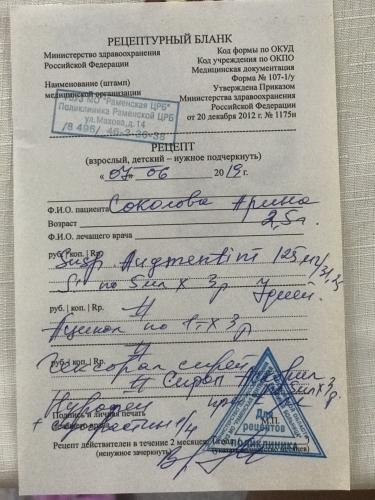 РЕЦЕПТУРНЫЙ БЛАНК
Министерство здравоохранения
Российской Федерации
Код формы по ОКУД
Код учреждения по ОКПО
Медицинская документация
Форма № 107-1/у
Утверждена Приказом
Министерства здравоохранения
Российской Федерации
от 20 декабря 2012 г. № 1175н
Наименование (штамп)
медицинской организации
ГБУЗ МО "Раменская ЦРБ"
Поликлиника Раменской ЦРБ
ул. Махова, д.14
/8 496/ 46-3-36-38
РЕЦЕПТ
(взрослый, детский – нужное подчеркнуть)
« 07 » 06 2019 г.
Ф.И.О. пациента Соколова Арина
Возраст 2,5 г.
Ф.И.О. лечащего врача
руб.| коп. | Rp.
Susp Augmentini 125мг/31,25
S: по 5мл х 3р 7 дней.
руб. | коп. | Rp. #
по 1т х 3р
руб.| коп. | Rp. #
# Сироп
по 5мл х 3р.
Подпись и личная печать
М.П.
+ 1/4
Для
рецептов
ПОЛИКЛИНИКА
Рецепт действителен в течение 2 месяцев, 1 года
(ненужное зачеркнуть) (указать количество месяцев)